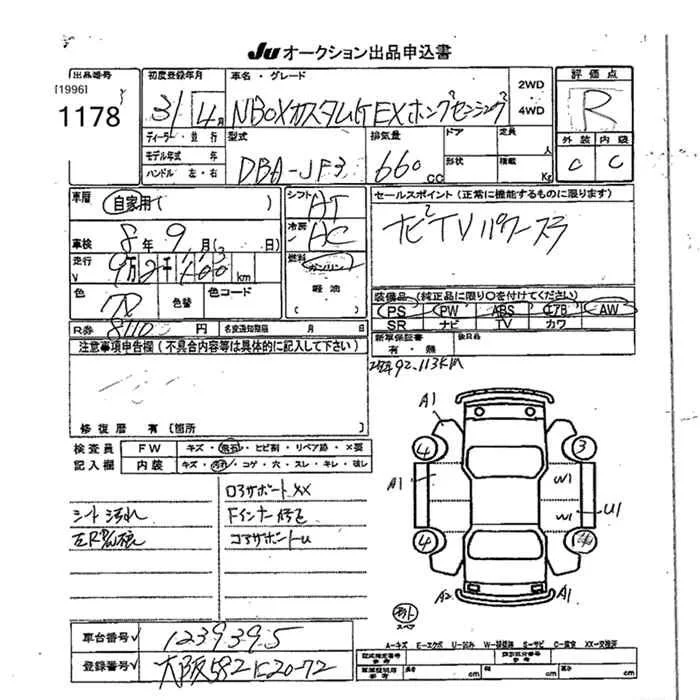 Ju オークション出品申込書
出品番号
[1996]
1178
初度登録年月
31年 4月
ディーラー・並行
モデル年式 年
ハンドル 左・右
車名・グレード
NBOXカスタムG EXホンダセンシング
2WD
・
4WD
型式
DBA-JF3
排気量
660 CC
ドア
形状
定員 人
積載 Kg
評価点
R
外装 内装
C C
車歴
自家用( )
車検
8年 9月( 日)
走行
km
色
色替
色コード
R券
8110 円
名変通知期限 月 日
シフト
AT
冷房
AC
燃料
ガソリン
軽油
( )
セールスポイント(正常に機能するものに限ります)
ナビTVパワースラ
装備品(純正品に限り○を付けてください)
PS PW ABS エアB AW
SR ナビ TV カワ
新車保証書
有・無
後日品
92,113KM
注意事項申告欄(不具合内容等は具体的に記入して下さい)
修復歴 有〔箇所
検査員
記入欄
FW
キズ・飛石・ヒビ割・リペア跡・×要
内装
キズ・汚れ・コゲ・穴・スレ・キレ・破レ
シート汚れ
ロアサポートXX
Fインナー修正
コアサポートU
A1
4
3
A1
W1
W1
U1
4
A2
A1
スペア
A-キズ E-エクボ U-凹み W-補修跡 S-サビ C-腐食 XX-交換済
車台番号
1239395
登録番号
大阪582に20-72
型式指定番号
参考
類別区分番号
参考
参考
長さ cm
幅 cm
高さ cm